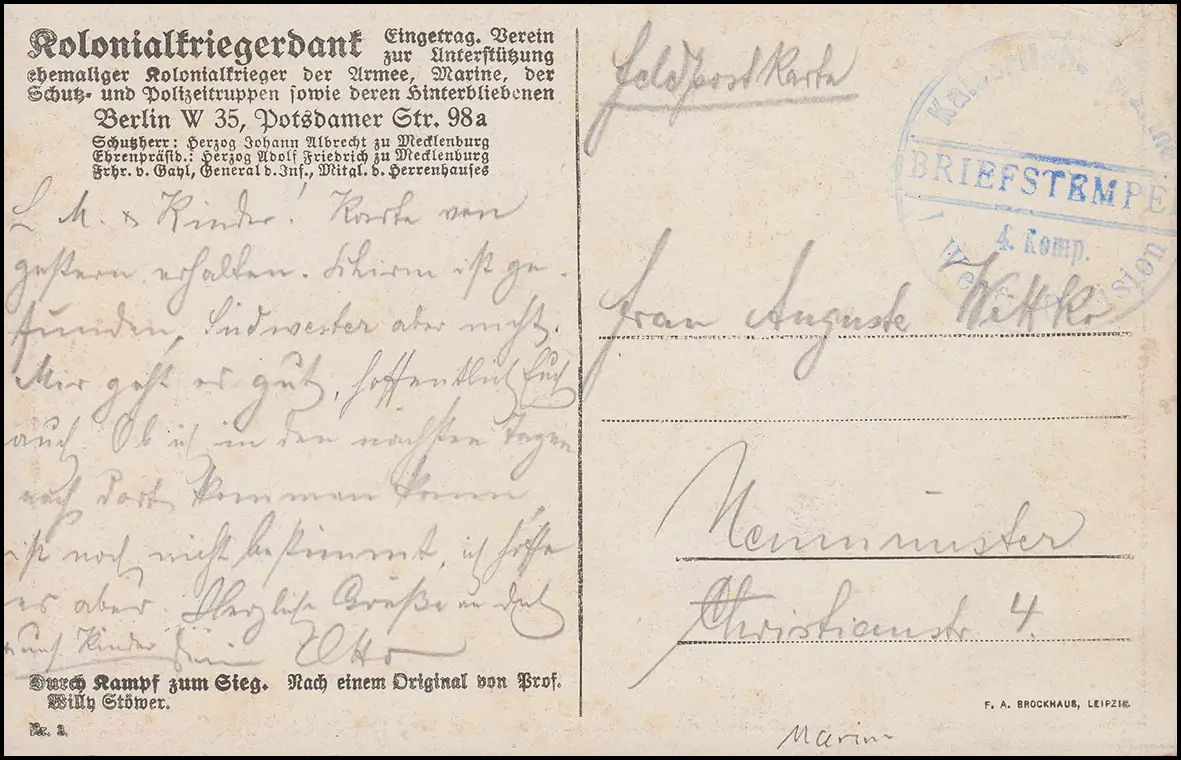 Kolonialkriegerdank Eingetrag. Verein
zur Unterstützung
ehemaliger Kolonialkrieger der Armee, Marine, der
Schutz- und Polizeitruppen sowie deren Hinterbliebenen
Berlin W 35, Potsdamer Str. 98a
Schutzherr: Herzog Johann Albrecht zu Mecklenburg
Ehrenpräsid.: Herzog Adolf Friedrich zu Mecklenburg
Frhr. v. Gayl, General d. Inf., Mitgl. d. Herrenhauses
L. M. & Kinder! Karte von
gestern erhalten. Schirm ist ge-
funden, Südwester aber nicht.
Mir geht es gut, hoffentlich Euch
auch. Ob ich in den nächsten Tagen
nach dort kommen kann,
ist noch nicht bestimmt, ich hoffe
es aber. Herzliche Grüße an dich
und Kinder Dein Otto
Durch Kampf zum Sieg. Nach einem Original von Prof.
Willy Stöwer.
Nr. 3.
Feldpostkarte
Kaiserliche Marine
BRIEFSTEMPEL
4. Komp.
I Werftdivision
Frau Auguste Wettko
Neumünster
Christianstr 4.
F. A. BROCKHAUS, LEIPZIG.
Marine